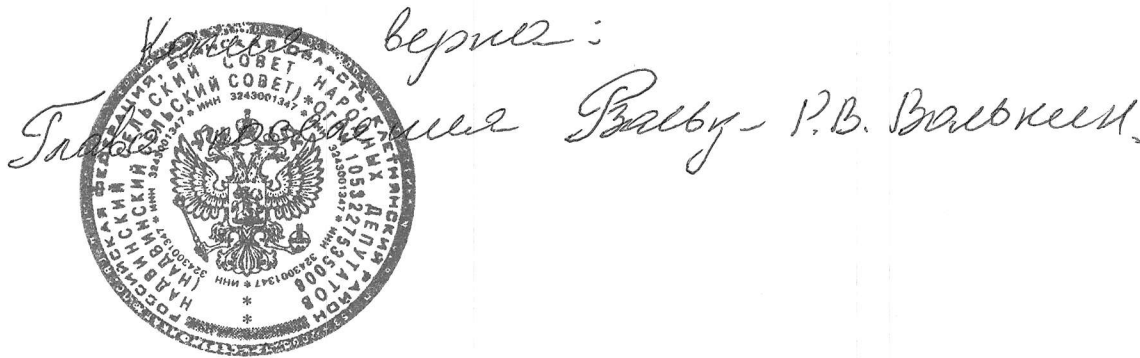 Копия верна:
Глава поселения Р.В. Валькин.
РОССИЙСКАЯ ФЕДЕРАЦИЯ, БРЯНСКАЯ ОБЛАСТЬ, КЛЕТНЯНСКИЙ РАЙОН
НАДВИНСКИЙ СЕЛЬСКИЙ СОВЕТ НАРОДНЫХ ДЕПУТАТОВ
(НАДВИНСКИЙ СЕЛЬСКИЙ СОВЕТ)*ОГРН 1053227535008
* ИНН 3243001347 * ИНН 3243001347 * ИНН 3243001347 * ИНН 3243001347